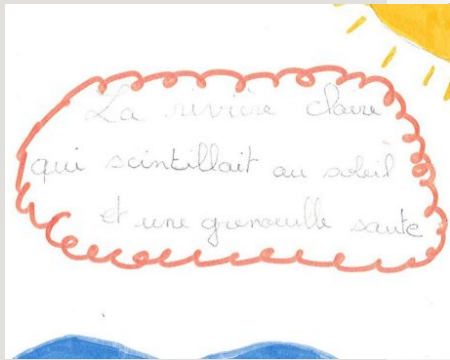 La rivière claire
qui scintillait au soleil
et une grenouille saute